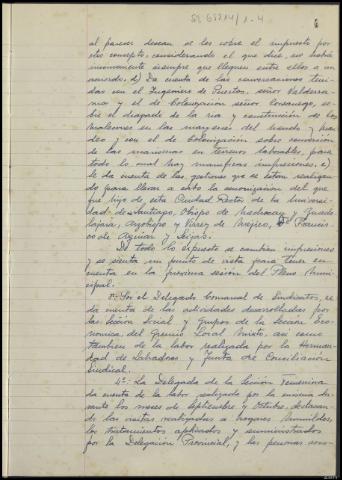 6
al parecer desean se les cobre el impuesto por
ese concepto, considerando el que dice, no habrá
inconveniente siempre que lleguen entre ellos a un
acuerdo. d) Da cuenta de las conversaciones teni-
das con el Ingeniero de Puertos, señor Valderra-
ma y el de Colonización señor so-
bre el dragado de la ria y construcción de los
malecones en las margenes del y
y con el de Colonización sobre conversión
de las marismas en terreno laborable, para
todo lo cual hay magnificas impresiones. e)
le da cuenta de las gestiones que se estan realizan-
do para llevar a cabo la conmemoración del que
fue hijo de esta Ciudad Rector de la Univer-
dad de Santiago, Obispo de Mondoñedo, Guada-
lajara, Arzobispo y Virrey de Mejico, D. Francis-
co de Aguiar y Seijas.
De todo lo expuesto se cambian impresiones
y se sienta un punto de vista para tener en
cuenta en la proxima sesión del Pleno Muni-
cipal.
3º. Por el Delegado Comarcal de Sindicatos, se
da cuenta de las actividades desarrolladas por
las Sección Social y Grupos de la Sección Eco-
nomica del Gremio Local Mixto, asi como
tambien de la labor realizada por la Herman-
dad de Labradores y Junta de Conciliación
Sindical.
4º. La Delegada de la Sección Femenina
da cuenta de la labor realizada por la misma du-
rante los meses de Septiembre y Octubre, destacan-
do las visitas realizadas a hogares humildes,
los tratamientos aplicados y suministrados
por la Delegación Provincial, y las personas